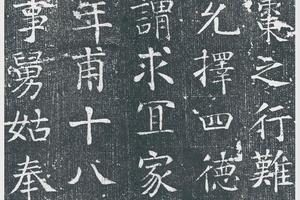 棗之行難
允擇四德
謂求冝家
年甫十八
事舅姑奉